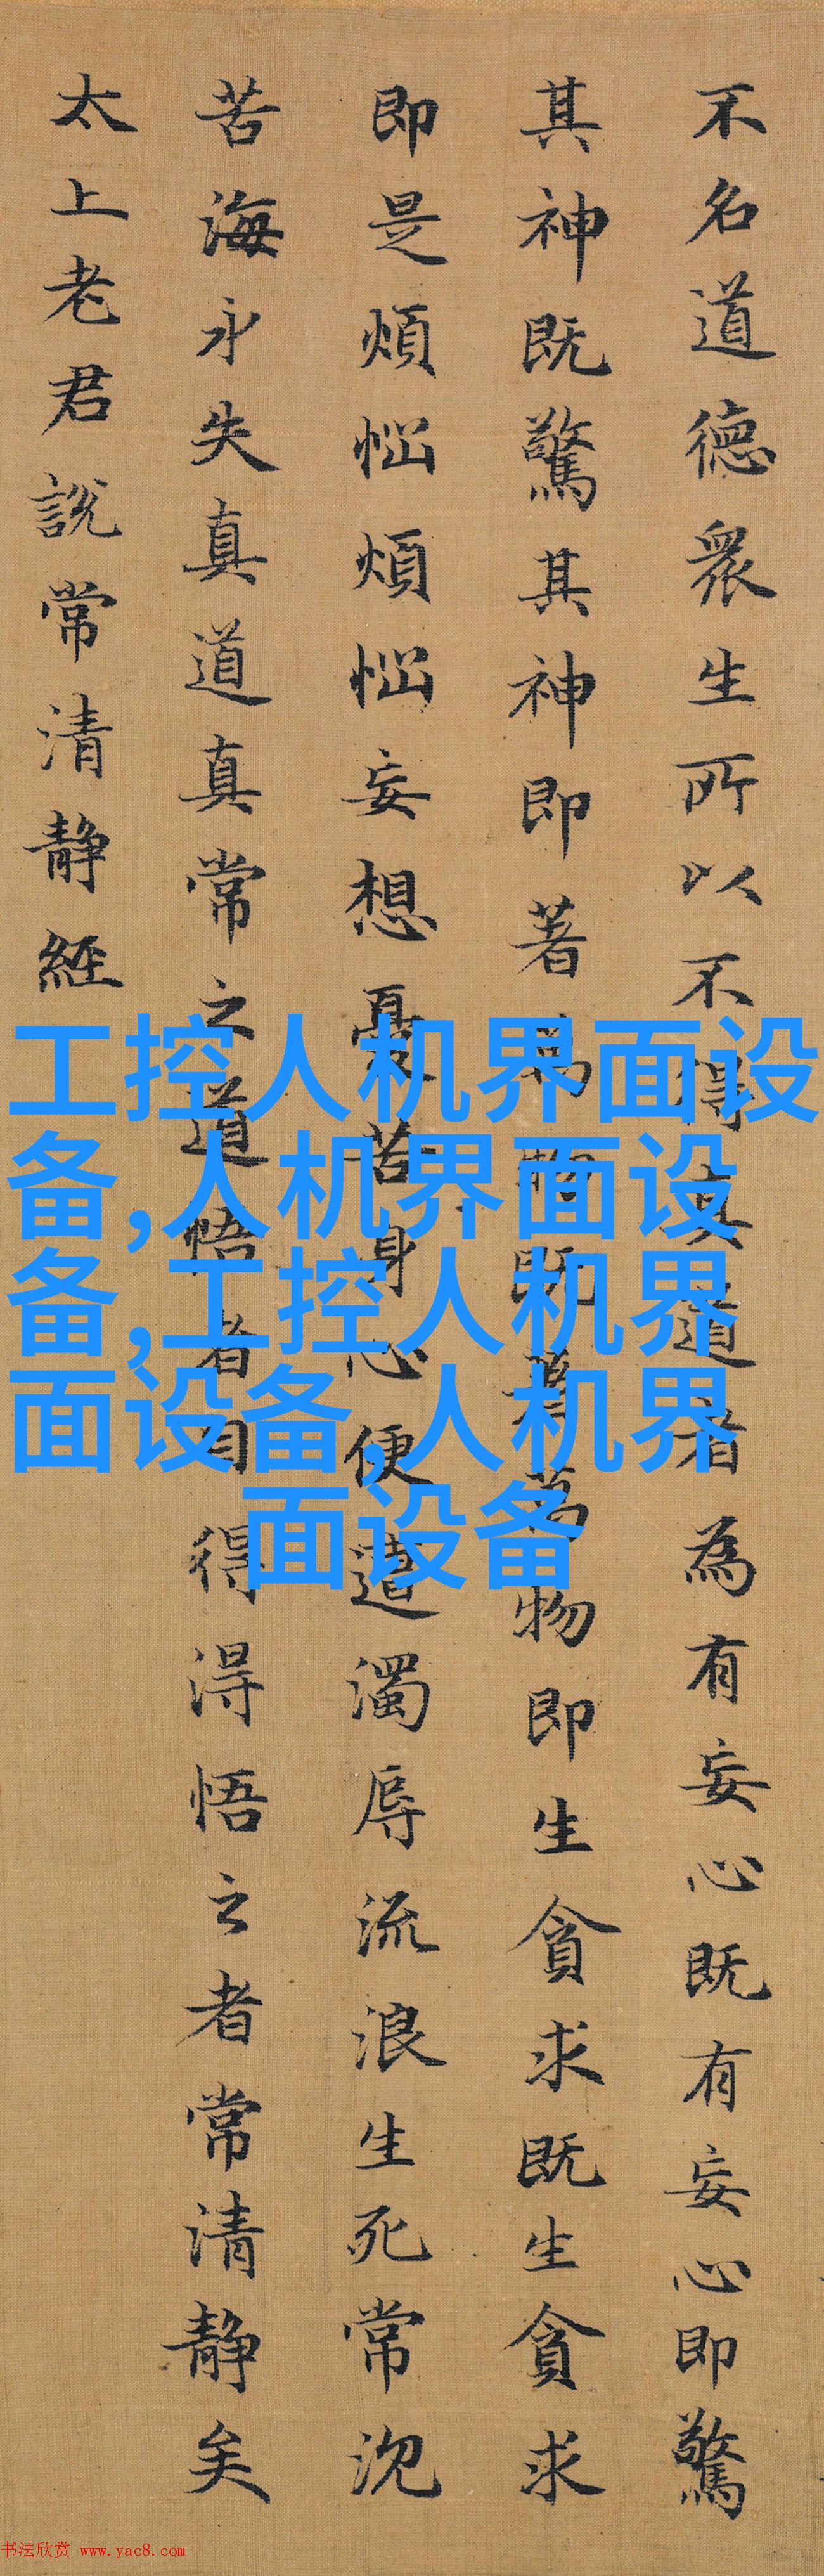 不名道德衆生所以不得真道者為有妄心既有妄心即驚
其神既驚其神即著萬物既著萬物即生貪求既生貪求
即是煩惱煩惱妄想憂苦身心便遭濁辱流浪生死常沉
苦海永失真道真常之道悟者自得得悟之者常清靜矣
太上老君說常清靜經
工控人机界面设
备,人机界面设
备,工控人机界
面设备,人机界
面设备
书法欣赏 www.yac8.com